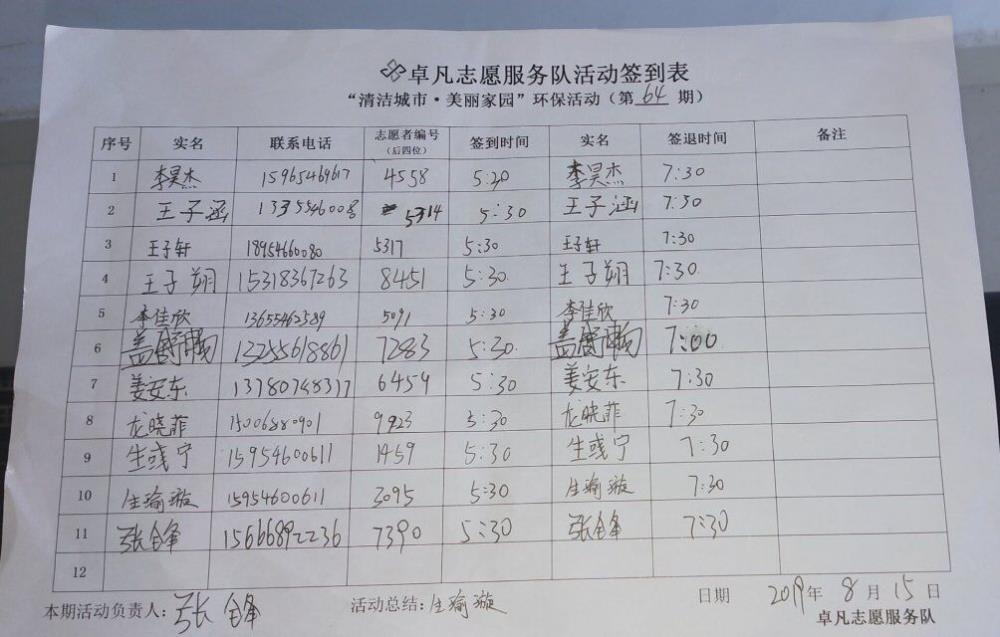 卓凡志愿服务队活动签到表
“清洁城市·美丽家园”环保活动（第 64 期）
序号 实名 联系电话 志愿者编号（后四位） 签到时间 实名 签退时间 备注
1 李昊杰 15965469617 4558 5:20 李昊杰 7:30
2 王子涵 5314 5:30 王子涵 7:30
3 王子轩 18954660080 5317 5:30 王子轩 7:30
4 王子翔 15318367263 8451 5:30 王子翔 7:30
5 李佳欣 13655462589 5091 5:30 李佳欣 7:30
6 盖舒畅 13255618861 7283 5:30 盖舒畅 7:00
7 姜安东 13780748317 6459 5:30 姜安东 7:30
8 龙晓菲 15006880901 9923 5:30 龙晓菲 7:30
9 生彧宁 15954600611 1459 5:30 生彧宁 7:30
10 生瑜漩 15954600611 3095 5:30 生瑜漩 7:30
11 张锋 15666892236 7390 5:30 张锋 7:30
12
本期活动负责人：张锋 活动总结：生瑜漩 日期 2019年 8 月 15 日
卓凡志愿服务队